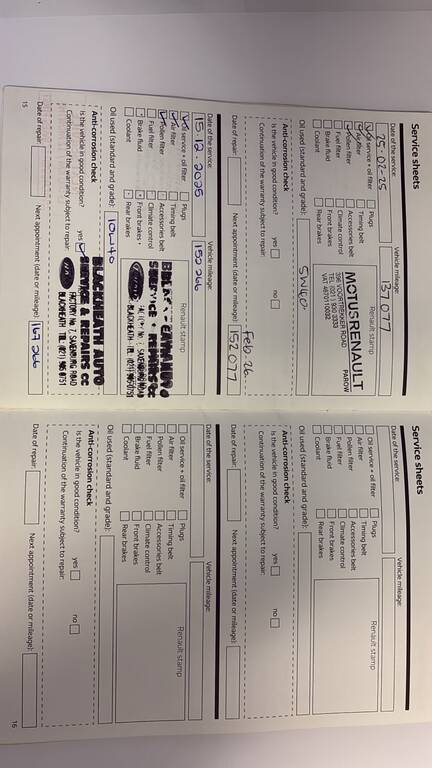 Service sheets
Date of the service:
Vehicle mileage:
25-02-25
137077
Oil service + oil filter
Plugs
Renault stamp
Air filter
Timing belt
Pollen filter
Accessories belt
Fuel filter
Climate control
Brake fluid
Front brakes
Coolant
Rear brakes
MOTUS RENAULT
PAROW
396 VOORTREKKER ROAD
TEL: 021
Oil used (standard and grade):
5W40
Anti-corrosion check
Is the vehicle in good condition?
yes
no
Continuation of the warranty subject to repair:
Feb 26
Date of repair:
Next appointment (date or mileage):
152077
Date of the service:
Vehicle mileage:
15.12.2025
152266
Oil service + oil filter
Plugs
Renault stamp
Air filter
Timing belt
Pollen filter
Accessories belt
Fuel filter
Climate control
Brake fluid
Front brakes
Coolant
Rear brakes
Oil used (standard and grade):
10W40
Anti-corrosion check
Is the vehicle in good condition?
yes
Continuation of the warranty subject to repair:
BLACKHEATH AUTO
SERVICE & REPAIRS CC
FACTORY No 7, SAXENBURG ROAD
BLACKHEATH TEL: (021) 905 8751
Date of repair:
Next appointment (date or mileage):
167266
15
Service sheets
Date of the service:
Vehicle mileage:
Oil service + oil filter
Plugs
Renault stamp
Air filter
Timing belt
Pollen filter
Accessories belt
Fuel filter
Climate control
Brake fluid
Front brakes
Coolant
Rear brakes
Oil used (standard and grade):
Anti-corrosion check
Is the vehicle in good condition?
yes
no
Continuation of the warranty subject to repair:
Date of repair:
Next appointment (date or mileage):
Date of the service:
Vehicle mileage:
Oil service + oil filter
Plugs
Renault stamp
Air filter
Timing belt
Pollen filter
Accessories belt
Fuel filter
Climate control
Brake fluid
Front brakes
Coolant
Rear brakes
Oil used (standard and grade):
Anti-corrosion check
Is the vehicle in good condition?
yes
no
Continuation of the warranty subject to repair:
Date of repair:
Next appointment (date or mileage):
16